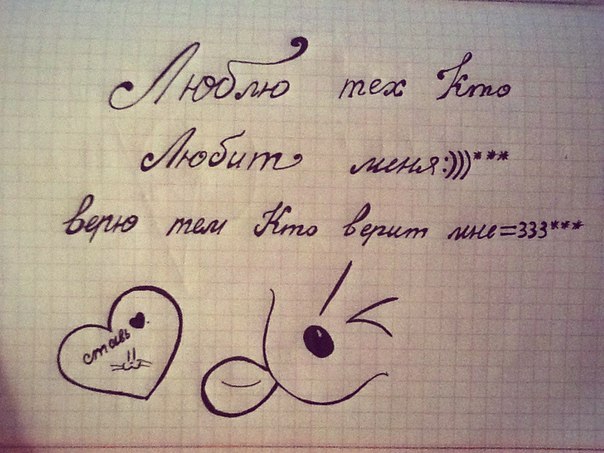 Люблю тех Кто
Любит меня:)))***
верю тем Кто верит мне=333***
ставь ♥
!!